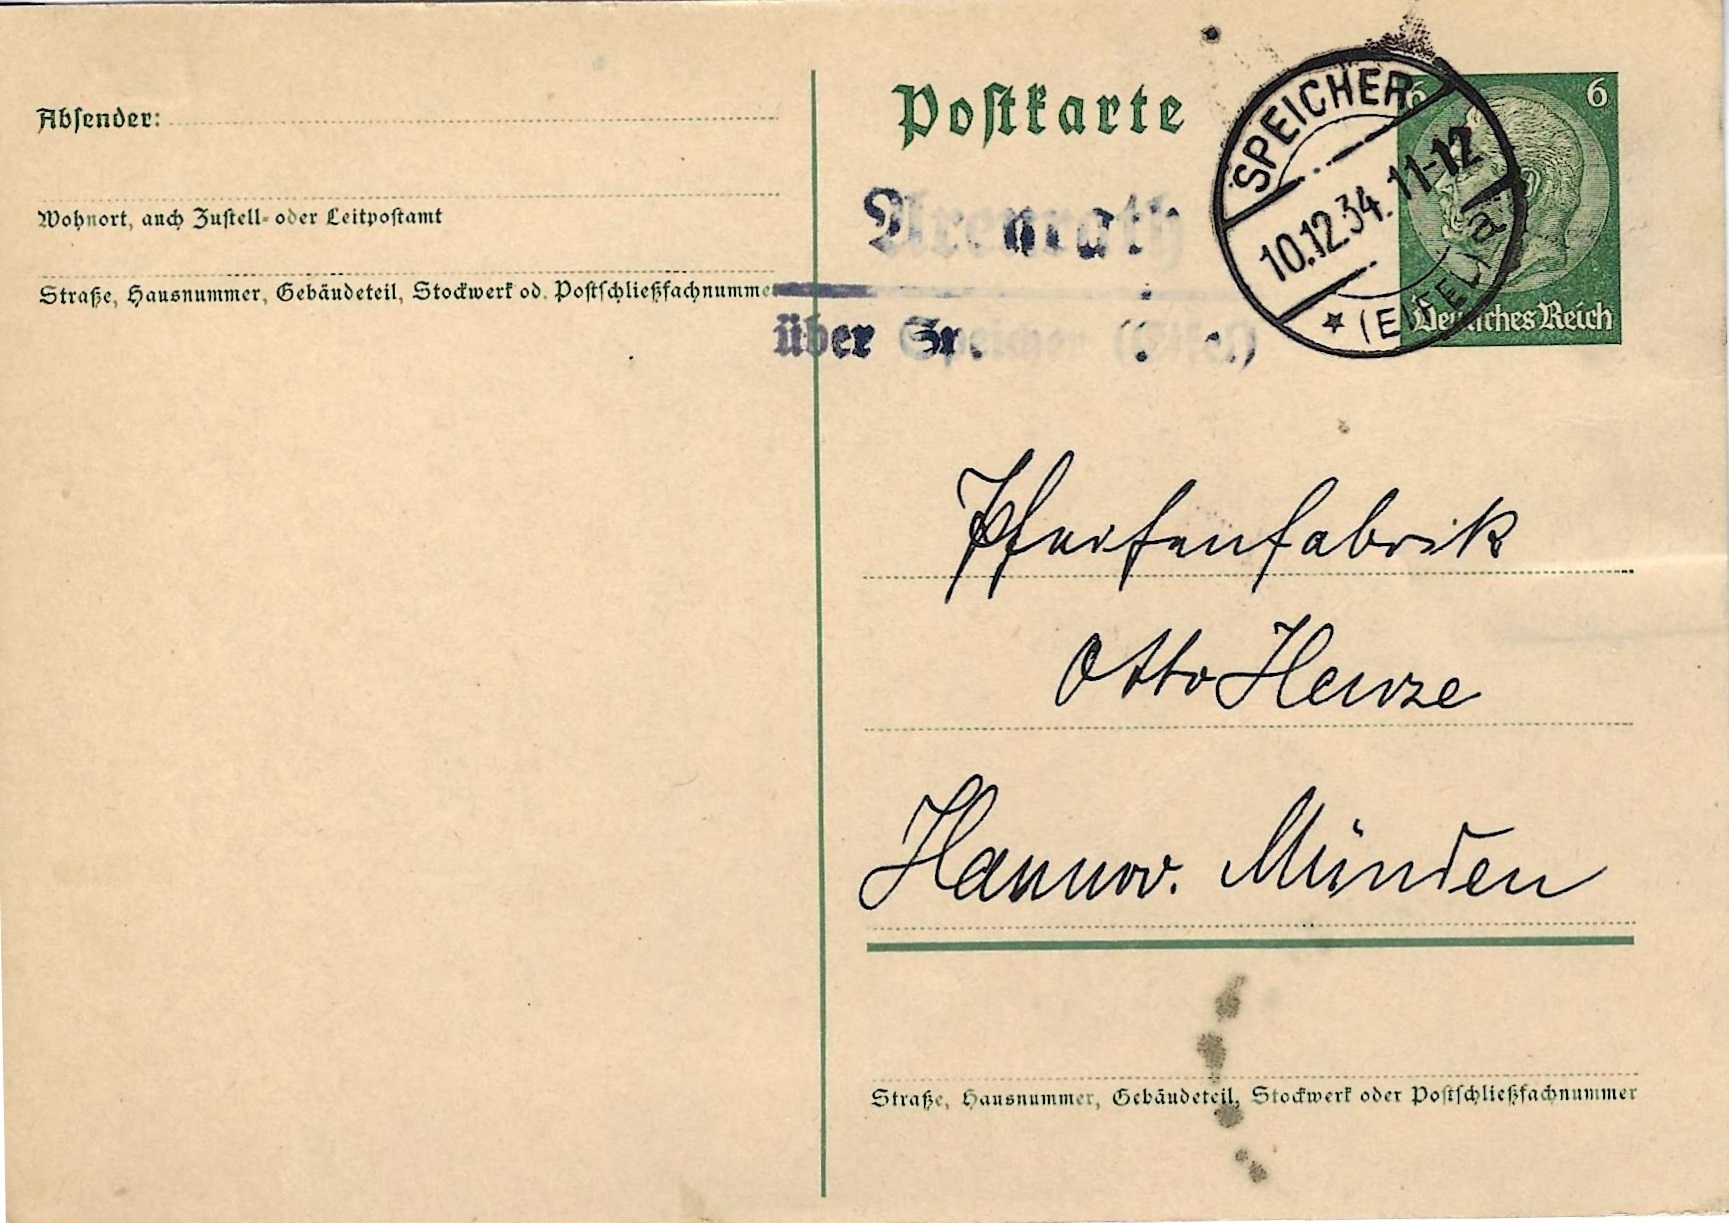 Absender:
Wohnort, auch Zustell- oder Leitpostamt
Straße, Hausnummer, Gebäudeteil, Stockwerk od. Postschließfachnummer
Postkarte
Arenrath
über Speicher (Eifel)
SPEICHER
10.12.34. 11-12
(EIFEL) a
6 6
Deutsches Reich
Pfeifenfabrik
Otto Henze
Hannov. Münden
Straße, Hausnummer, Gebäudeteil, Stockwerk oder Postschließfachnummer